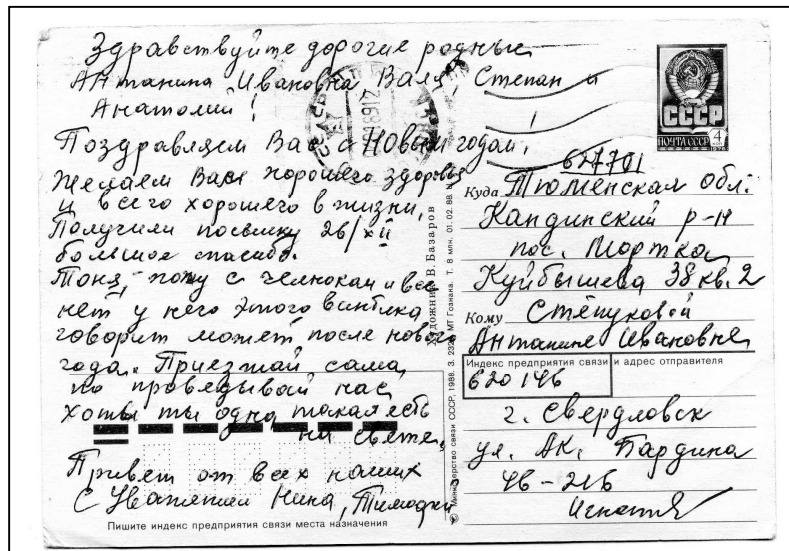 Здравствуйте дорогие родные
Антанина Ивановна Валя, Степан и
Анатолий!
Поздравляем Вас с Новым годом,
Желаем Вам хорошего здоровья
и всего хорошего в жизни,
Получили посылку 26/XII
большое спасибо.
Тоня, с и все
нет у него этого винтика
говорит может после нового
года. Приезжай сама,
по проведывай нас,
хотя ты одна такая есть
на свете,
Привет от всех наших
С Уважением Нина, Тимофей
Пишите индекс предприятия связи места назначения
Художник В. Базаров
Министерство связи СССР, 1988. З. МТ Гознака. Т. 8 млн. 01.02.88.
СССР
ПОЧТА СССР 4
627701
Куда Тюменская обл.
Кандинский р-н
пос. Мортка
Куйбышева 38 кв. 2
Кому Степуковой
Антанине Ивановне
Индекс предприятия связи и адрес отправителя
620146
г. Свердловск
ул. Ак. Бардина
46-216